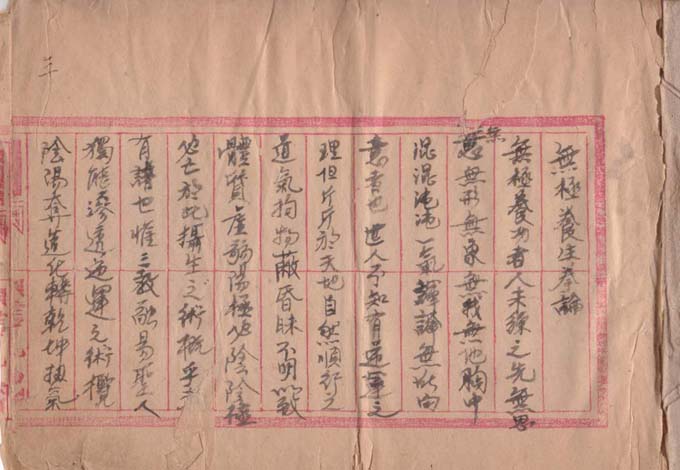 無極養生拳論
無極養功者人未練之先無思
無意無形無象無我無他胸中
混混沌沌一氣渾淪無所向
意者也世人不知有逆運之
理但斤斤於天地自然順行之
道氣拘物蔽昏昧不明以致
體質弱陽極必陰陰極
必亡於此攝生之術概乎
有諳也惟三教融易聖人
獨能滲透逆運之術攬
陰陽奪造化轉乾坤扭氣
年